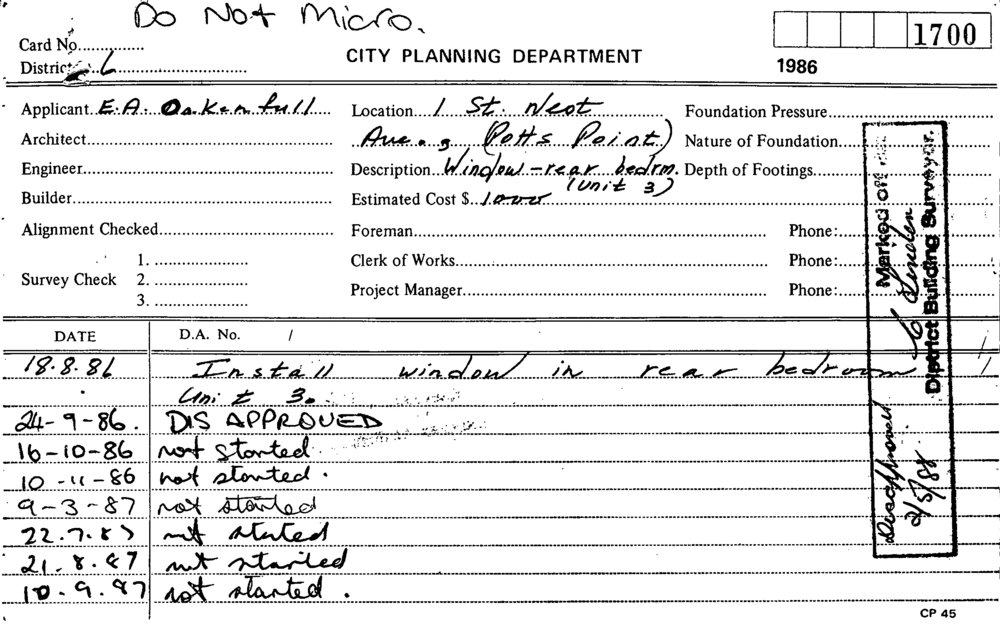 Do Not Micro.
Card No.
District 6
CITY PLANNING DEPARTMENT
1700
1986
Applicant E.A. Oakenfull
Location 1 St. Neot
Foundation Pressure
Architect
Ave., (Potts Point)
Nature of Foundation
Engineer
Description Window - rear bedrm.
Depth of Footings
(Unit 3)
Builder
Estimated Cost $ 1000
Alignment Checked
Foreman
Phone:
Survey Check
1.
2.
3.
Clerk of Works
Phone:
Project Manager
Phone:
Marked off
District Building Surveyor.
Disapproved
2/5/88
DATE
D.A. No. /
18.8.86 Install window in rear bedroom
Unit 3.
24-9-86. DISAPPROVED
16-10-86 not started
10-11-86 not started.
9-3-87 not started
22.7.87 not started
21.8.87 not started
10.9.87 not started.
CP 45